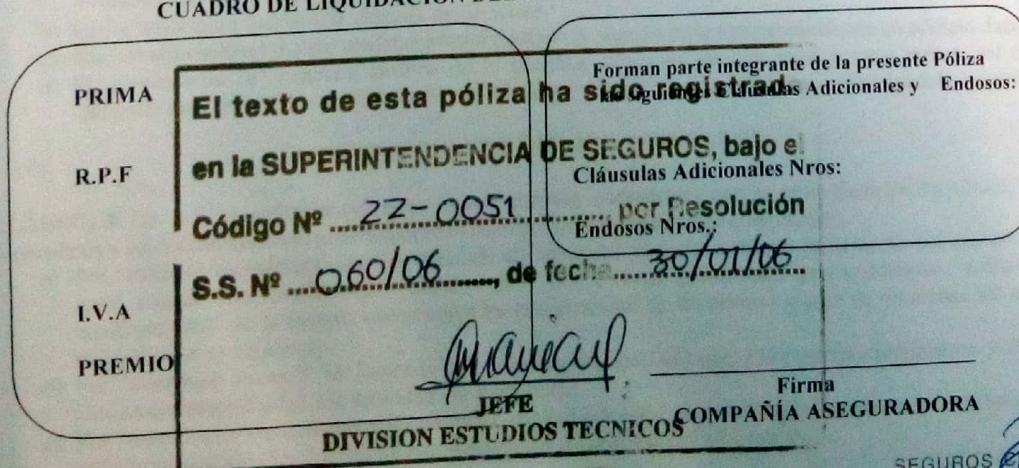 CUADRO DE LIQUIDACION
PRIMA
R.P.F
I.V.A
PREMIO
El texto de esta póliza ha sido registrad
en la SUPERINTENDENCIA DE SEGUROS, bajo el
Código Nº 22-0051 por Resolución
S.S. Nº 060/06, de fecha 30/01/06
JEFE
DIVISION ESTUDIOS TECNICOS
Forman parte integrante de la presente Póliza
Adicionales y Endosos:
Cláusulas Adicionales Nros:
Endosos Nros.:
Firma
COMPAÑÍA ASEGURADORA
SEGUROS